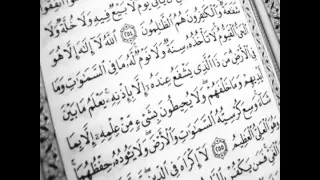 يَأْتِىَ يَوْمٌ لَّا بَيْعٌ فِيهِ وَلَا خُلَّةٌ وَلَا
شَفَٰعَةٌ وَٱلْكَٰفِرُونَ هُمُ ٱلظَّٰلِمُونَ ٢٥٤ ٱللَّهُ لَآ إِلَٰهَ إِلَّا هُوَ
ٱلْحَىُّ ٱلْقَيُّومُ لَا تَأْخُذُهُۥ سِنَةٌ وَلَا نَوْمٌ لَّهُۥ مَا فِى ٱلسَّمَٰوَٰتِ وَمَا
فِى ٱلْأَرْضِ مَن ذَا ٱلَّذِى يَشْفَعُ عِندَهُۥٓ إِلَّا بِإِذْنِهِۦ يَعْلَمُ مَا بَيْنَ
أَيْدِيهِمْ وَمَا خَلْفَهُمْ وَلَا يُحِيطُونَ بِشَىْءٍ مِّنْ عِلْمِهِۦٓ إِلَّا بِمَا
شَآءَ وَسِعَ كُرْسِيُّهُ ٱلسَّمَٰوَٰتِ وَٱلْأَرْضَ وَلَا يَـُٔودُهُۥ حِفْظُهُمَا
وَهُوَ ٱلْعَلِىُّ ٱلْعَظِيمُ ٢٥٥ لَآ إِكْرَاهَ فِى ٱلدِّينِ
ٱلْغَىِّ فَمَن يَكْفُرْ